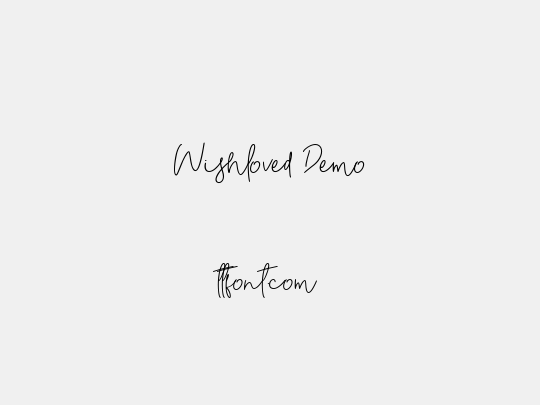 Wishloved Demo
ttfont.com